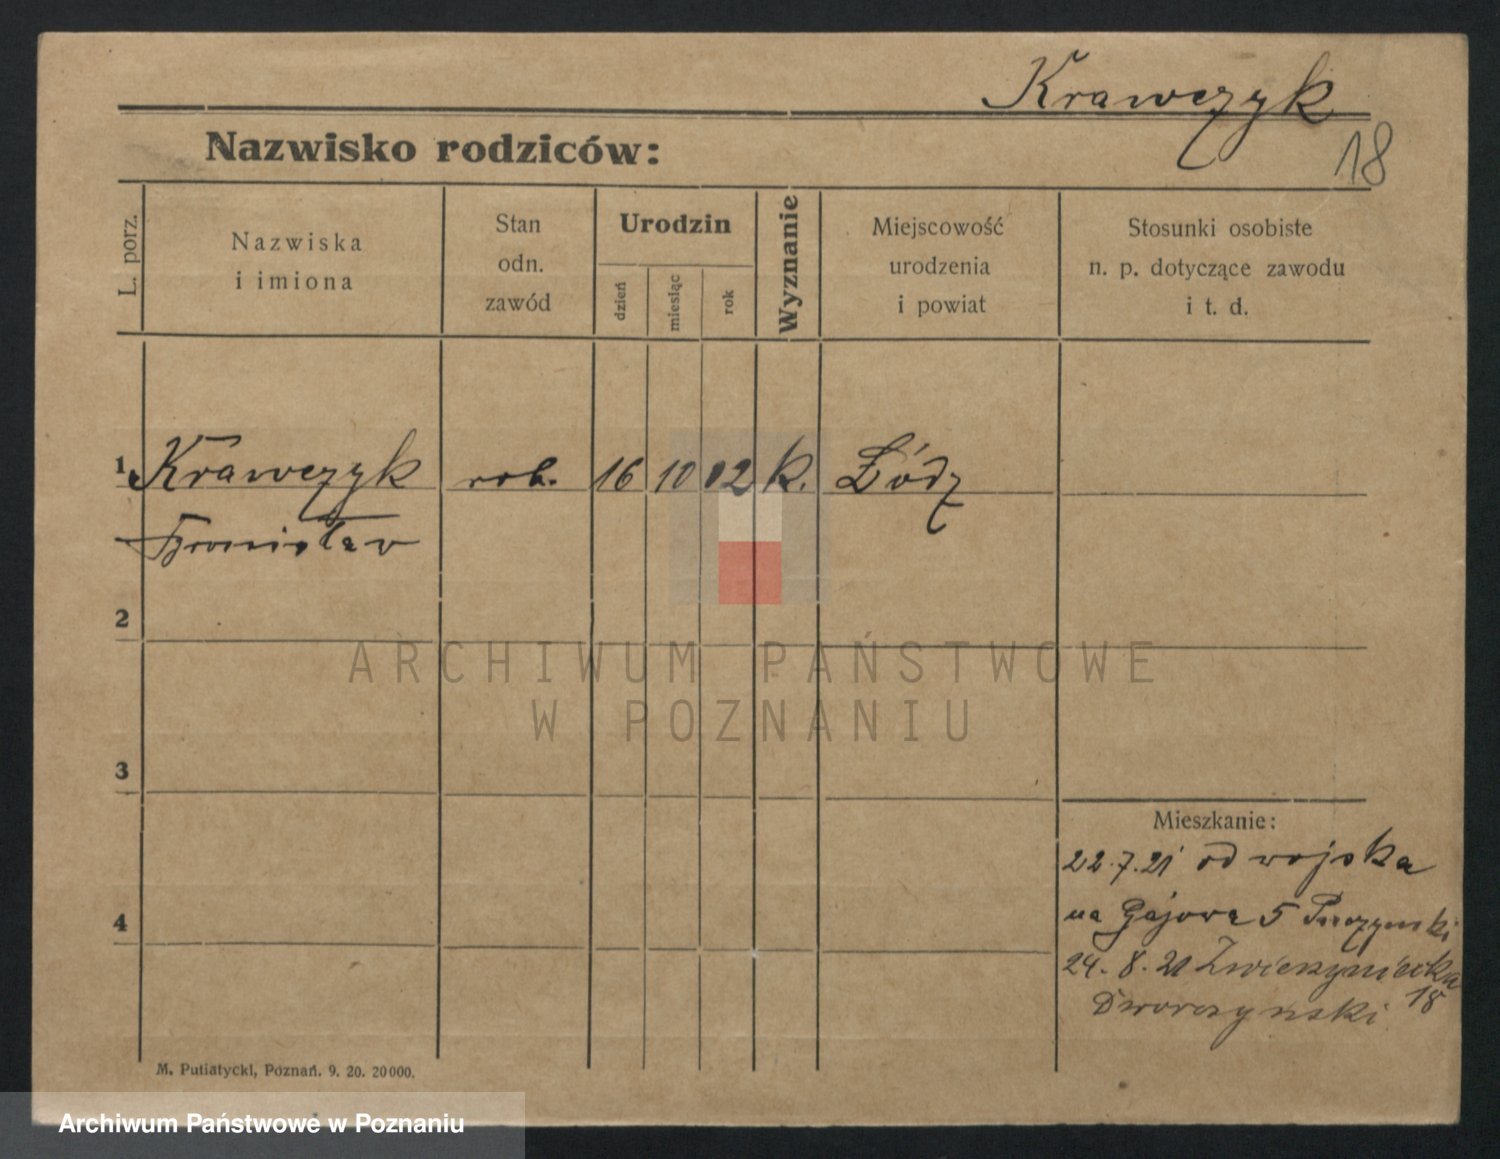 Krawczyk
18
Nazwisko rodziców:
L. porz.
Nazwiska
i imiona
Stan
odn.
zawód
Urodzin
dzień
miesiąc
rok
Wyznanie
Miejscowość
urodzenia
i powiat
Stosunki osobiste
n. p. dotyczące zawodu
i t. d.
1 Krawczyk rob. 16 10 02 k. Łódz
Bronisław
2
ARCHIWUM PAŃSTWOWE
W POZNANIU
3
Mieszkanie:
22.7.21 od wojska
4
na Gajowa 5
24.8.21 Zwierzyniecka
18
Dworczynski
M. Putiatycki, Poznań. 9. 20. 20000.
Archiwum Państwowe w Poznaniu